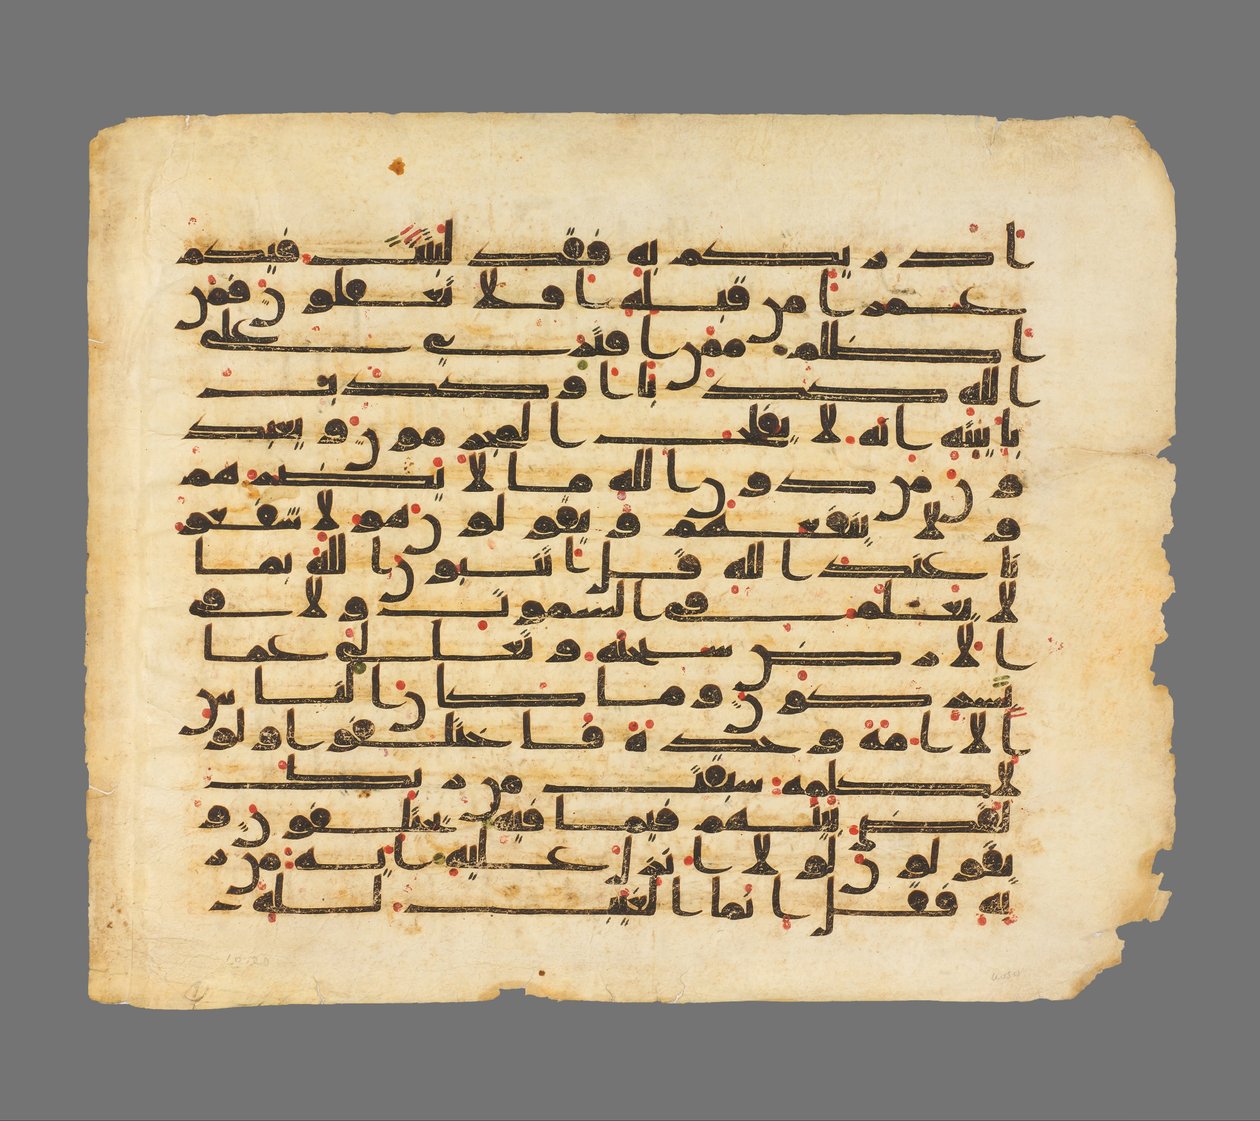 ادريكم به فقد لبثت فيكم
عمرا من قبله افلا تعقلون فمن
اظلم ممن افترى على
الله كذبا او كذب
بايته انه لا يفلح المجرمون ويعبد
ون من دون الله ما لا يضرهم
ولا ينفعهم ويقولون هولا شفعو
نا عند الله قل اتنبون الله بما
لا يعلم في السموت ولا في
الارض سبحنه وتعلى عما
يشركون وما كان الناس
الا امة وحدة فاختلفوا ولو
لا كلمة سبقت من ربك
لقضي بينهم فيما فيه يختلفون و
يقولون لولا انزل عليه اية من ر
به فقل انما الغيب لله